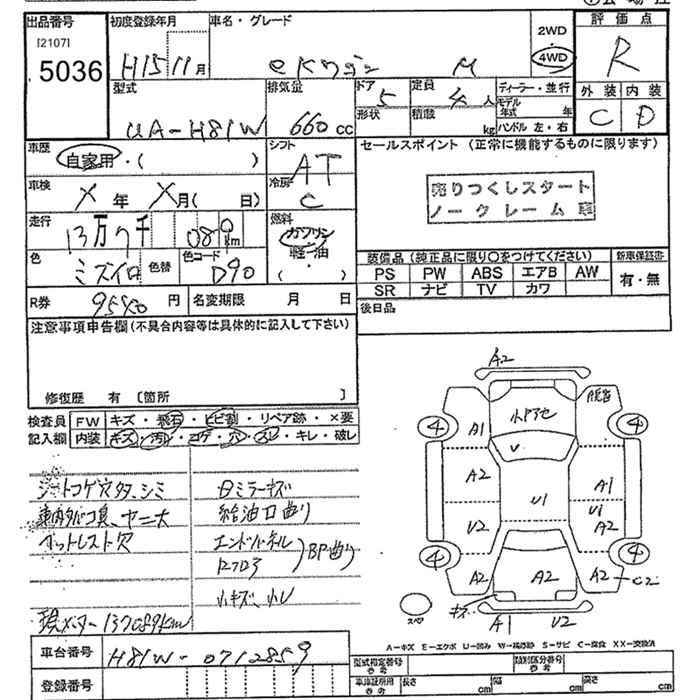 出品番号 初度登録年月 車名・グレード 評価点
[2107]
5036
H15 11月 eKワゴン M
2WD
4WD
R
型式 排気量 ドア 定員 ディーラー・並行 外装 内装
UA-H81W 660cc 5 4人
形状 積載 kg
モデル年式 年
ハンドル 左・右
C D
車歴 シフト セールスポイント (正常に機能するものに限ります)
自家用・( ) AT
車検 冷房
X年 X月( 日) C
売りつくしスタート
ノークレーム車
走行 燃料
13万7千 080km ガソリン
軽油
・( )
色 色替 色コード
ミズイロ D90
装備品 (純正品に限り○をつけてください) 新車保証書
PS PW ABS エアB AW 有・無
SR ナビ TV カワ
R券 円 名変期限 月 日 後日品
注意事項申告欄(不具合内容等は具体的に記入して下さい)
修復歴 有 [箇所 ]
検査員 FW キズ・飛石・ヒビ割・リペア跡・×要
記入欄 内装 キズ・汚レ・コゲ・穴・スレ・キレ・破レ
シートコゲ穴
車内タバコ臭、ヤニ大
ミラーキズ
給油口曲り
エンドパネル
Rフロア
BP曲り
小キズ、小凹
現メーター 137089km
A2
A1
A2
U2
A2
U1
A1
U1
A2
A2
C2
A2
キズ
A1 U2
4 4 4 4
スペア
A-キズ E-エクボ U-凹み S-サビ C-腐食 XX-交換済
車台番号 H81W-0712859
登録番号
型式指定番号 参考 類別区分番号 参考
車庫証明用 参考 長さ cm 幅 cm 高さ cm